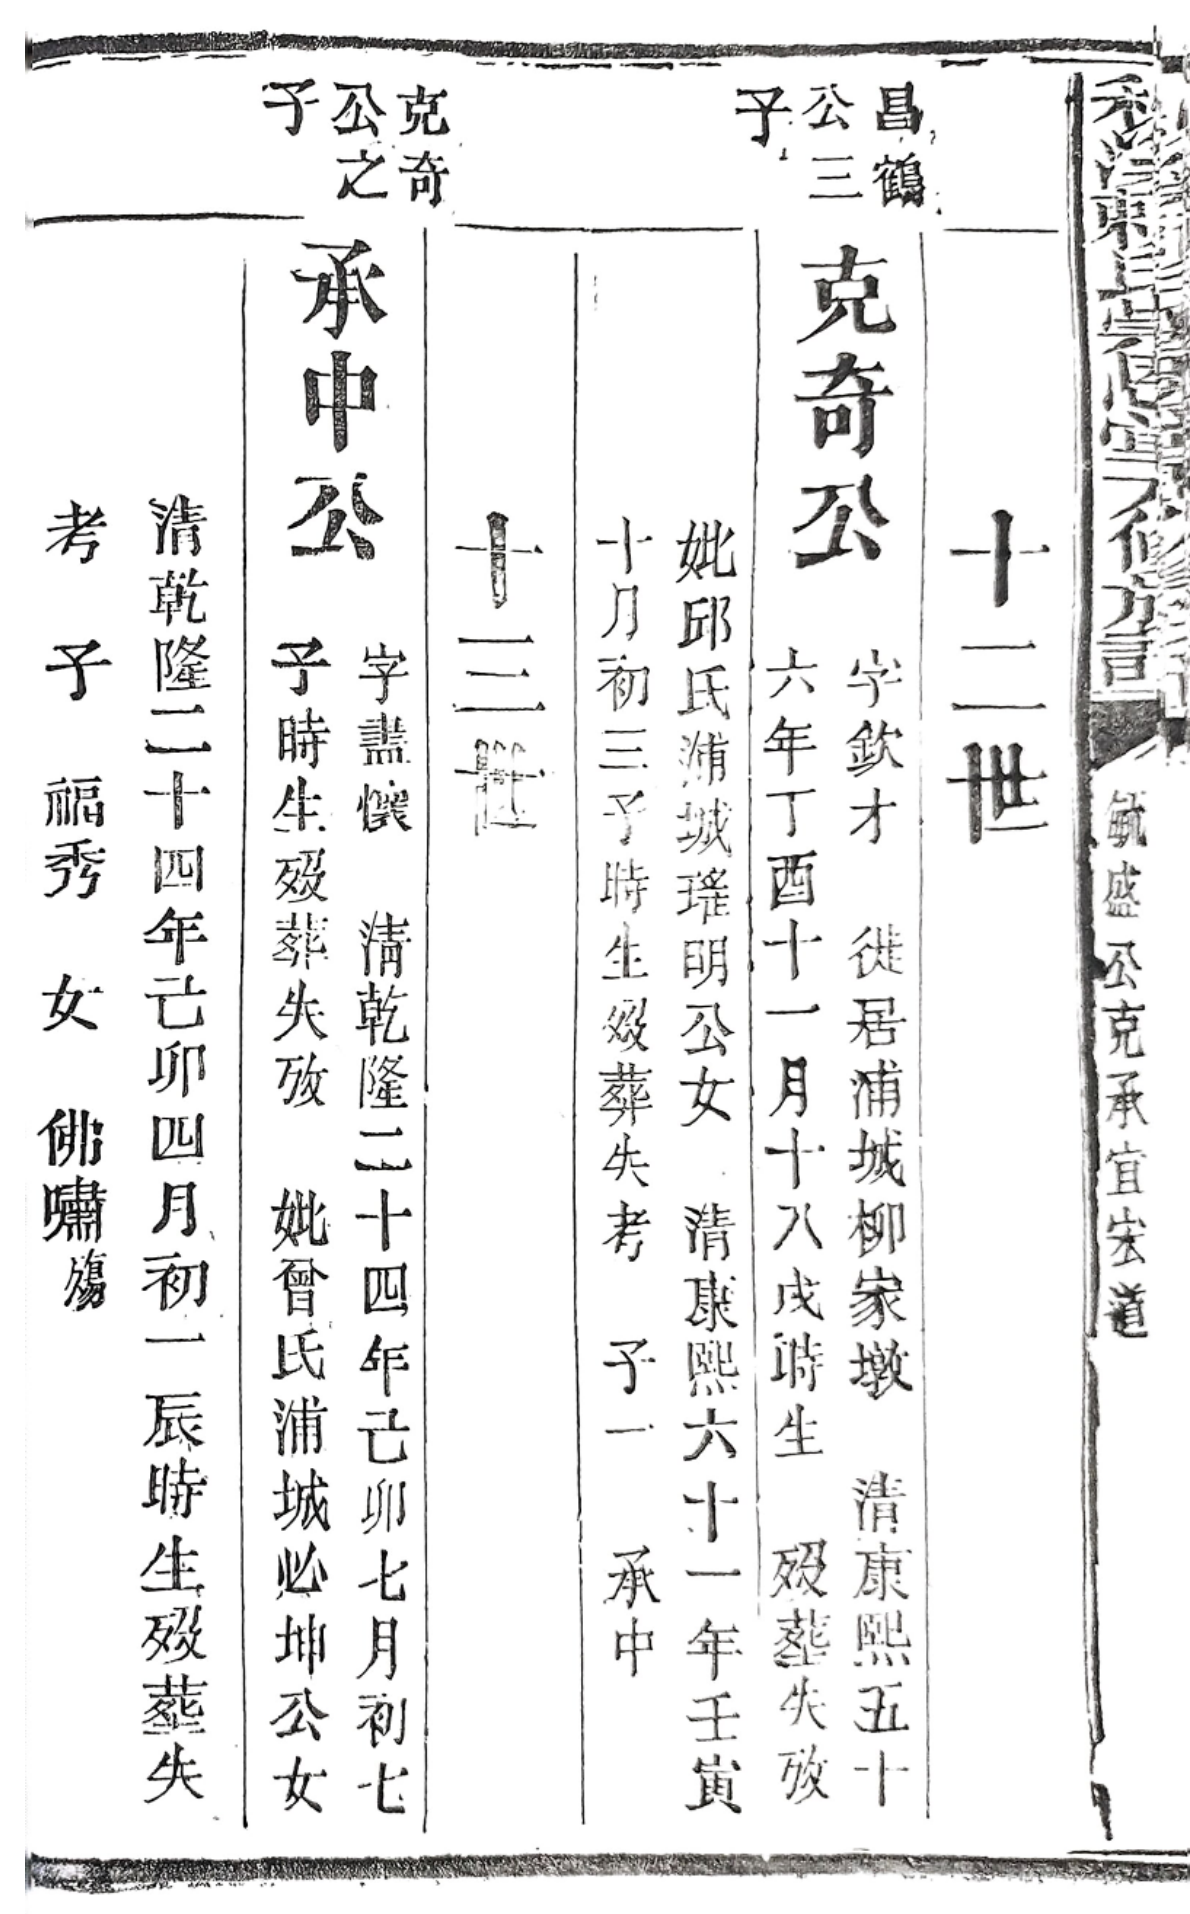 毓盛公克承宜宏道
十二世
昌鶴
公三
子
克奇公
字欽才 徙居浦城柳家墩 清康熙五十
六年丁酉十一月十八戌時生 歿葬失攷
妣邱氏浦城瑤明公女 清康熙六十一年壬寅
十月初三子時生歿葬失考 子一 承中
十三世
克奇
公之
子
承中公
字盡懷 清乾隆二十四年己卯七月初七
子時生歿葬失攷 妣曾氏浦城必坤公女
清乾隆二十四年己卯四月初一辰時生歿葬失
考 子 福秀 女 佛嘯殤